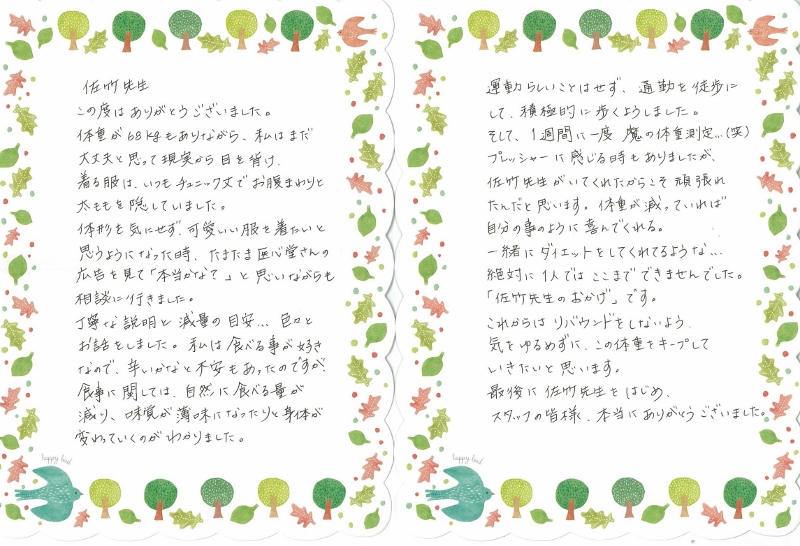 佐竹先生
この度はありがとうございました。
体重が68kgもありながら、私はまだ
大丈夫と思って現実から目を背け、
着る服は、いつもチュニック丈でお腹まわりと
太ももを隠していました。
体形を気にせず、可愛いい服を着たいと
思うようになった時、たまたま匠心堂さんの
広告を見て「本当かなて」と思いながらも
相談に行きました。
丁寧な説明と減量の目安… 色々と
お話をしました。私は食べる事が好き
なので、辛いかなと不安もあったのですが、
食事に関しては、自然に食べる量が
減り、味覚が薄味になったりと身体が
変わっていくのがわかりました。
happy bird
運動らしいことはせず、通勤を徒歩に
して、積極的に歩くようしました。
そして、1週間に一度 魔の体重測定…(笑)
プレッシャーに感じる時もありましたが、
佐竹先生がいてくれたからこそ頑張れ
たんだと思います。体重が減っていれば
自分の事のように喜んでくれる。
一緒にダイエットをしてくれてるような…
絶対に1人ではここまでできませんでした。
「佐竹先生のおかげ」です。
これからはリバウンドをしないよう、
気をゆるめずに、この体重をキープして
いきたいと思います。
最後に佐竹先生をはじめ、
スタッフの皆様、本当にありがとうございました。
happy bird